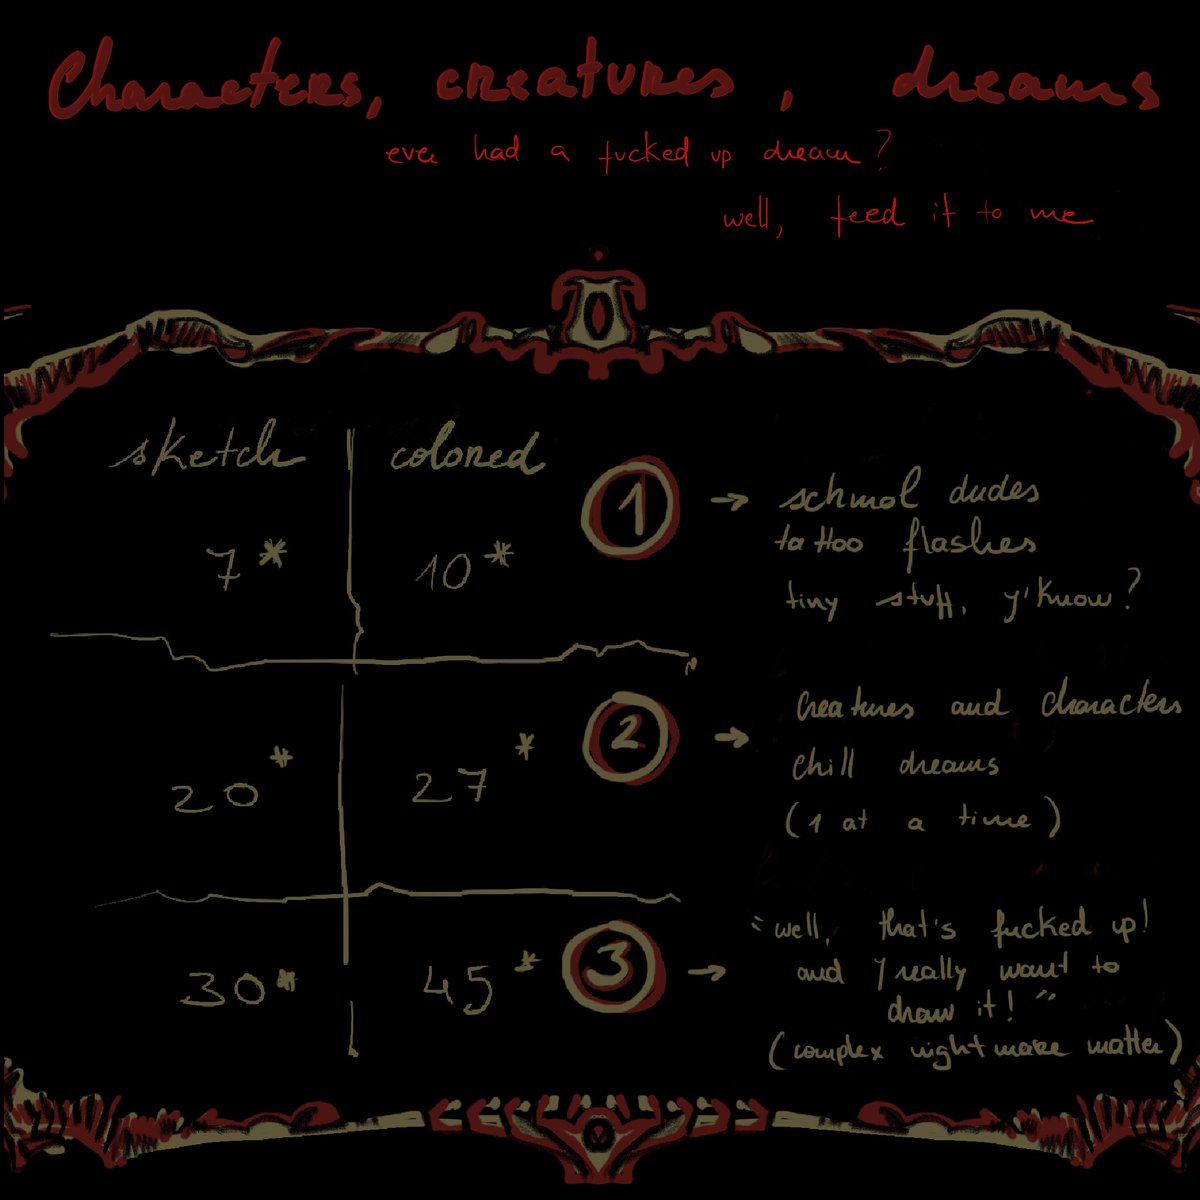 Characters, creatures, dreams
ever had a fucked up dream?
well, feed it to me
sketch colored
7* 10*
1 → schmol dudes
tattoo flashes
tiny stuff, y'know?
20* 27*
2 → creatures and characters
chill dreams
(1 at a time)
30* 45*
3 → "well, that's fucked up!
and I really want to
draw it!"
(complex nightmare matter)